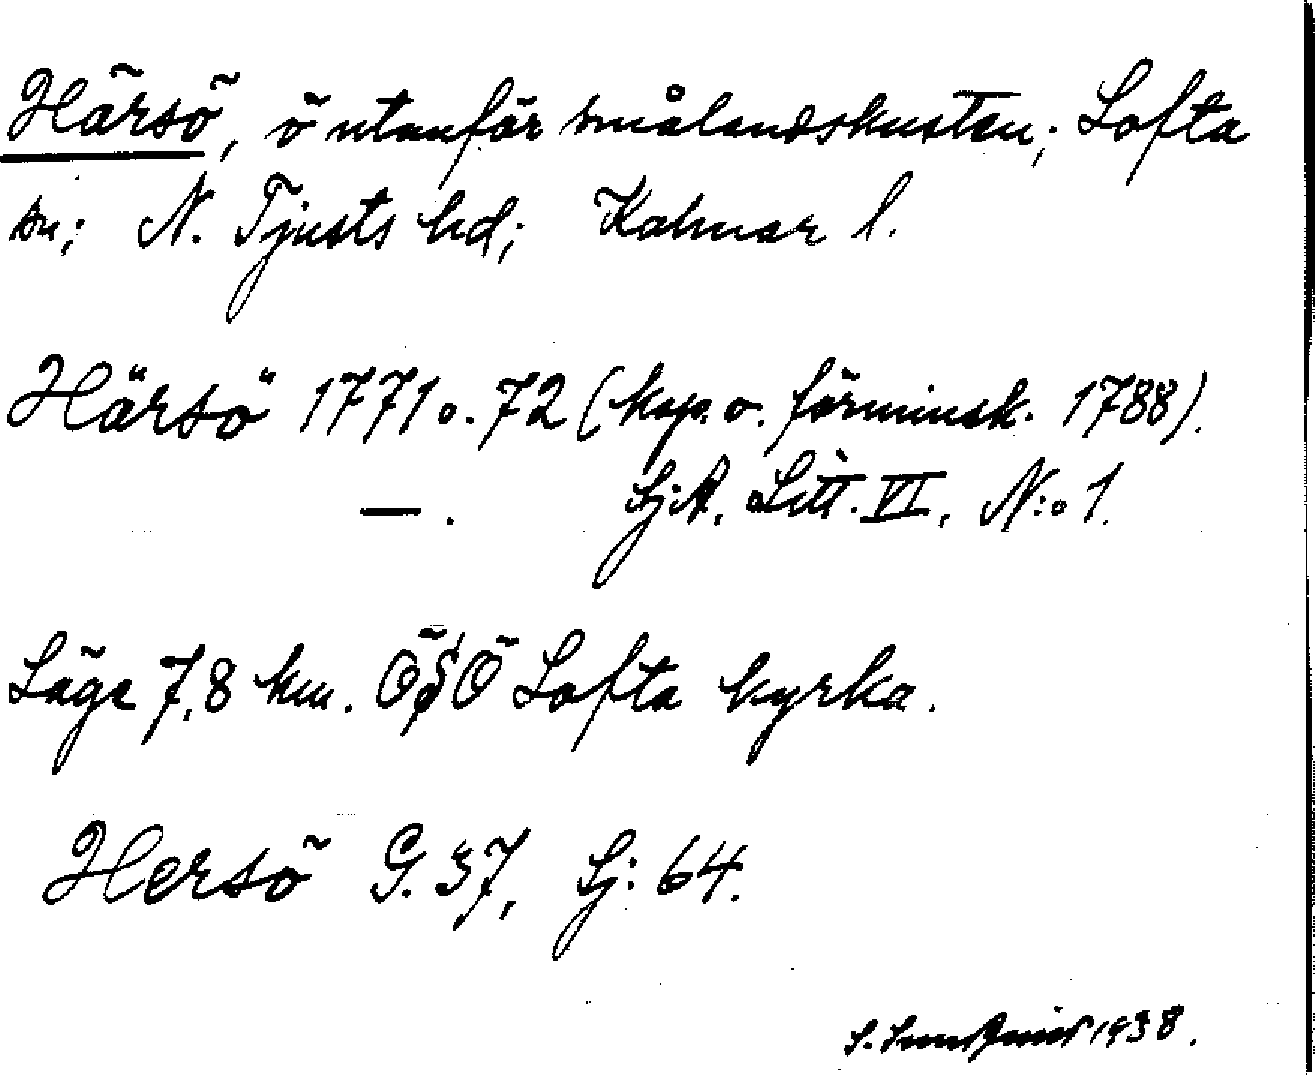 Härsö, ö utanför smålandskusten; Lofta
sn; N. Tjusts hd; Kalmar l.
Härsö 1771 o. 72 (kop. o. förminsk. 1788).
—. Sj.A. Litt. VI, N:o 1.
Läge 7,8 km. ÖSÖ Lofta kyrka.
Hersö G. 37, Sj: 64.
S. 1938.